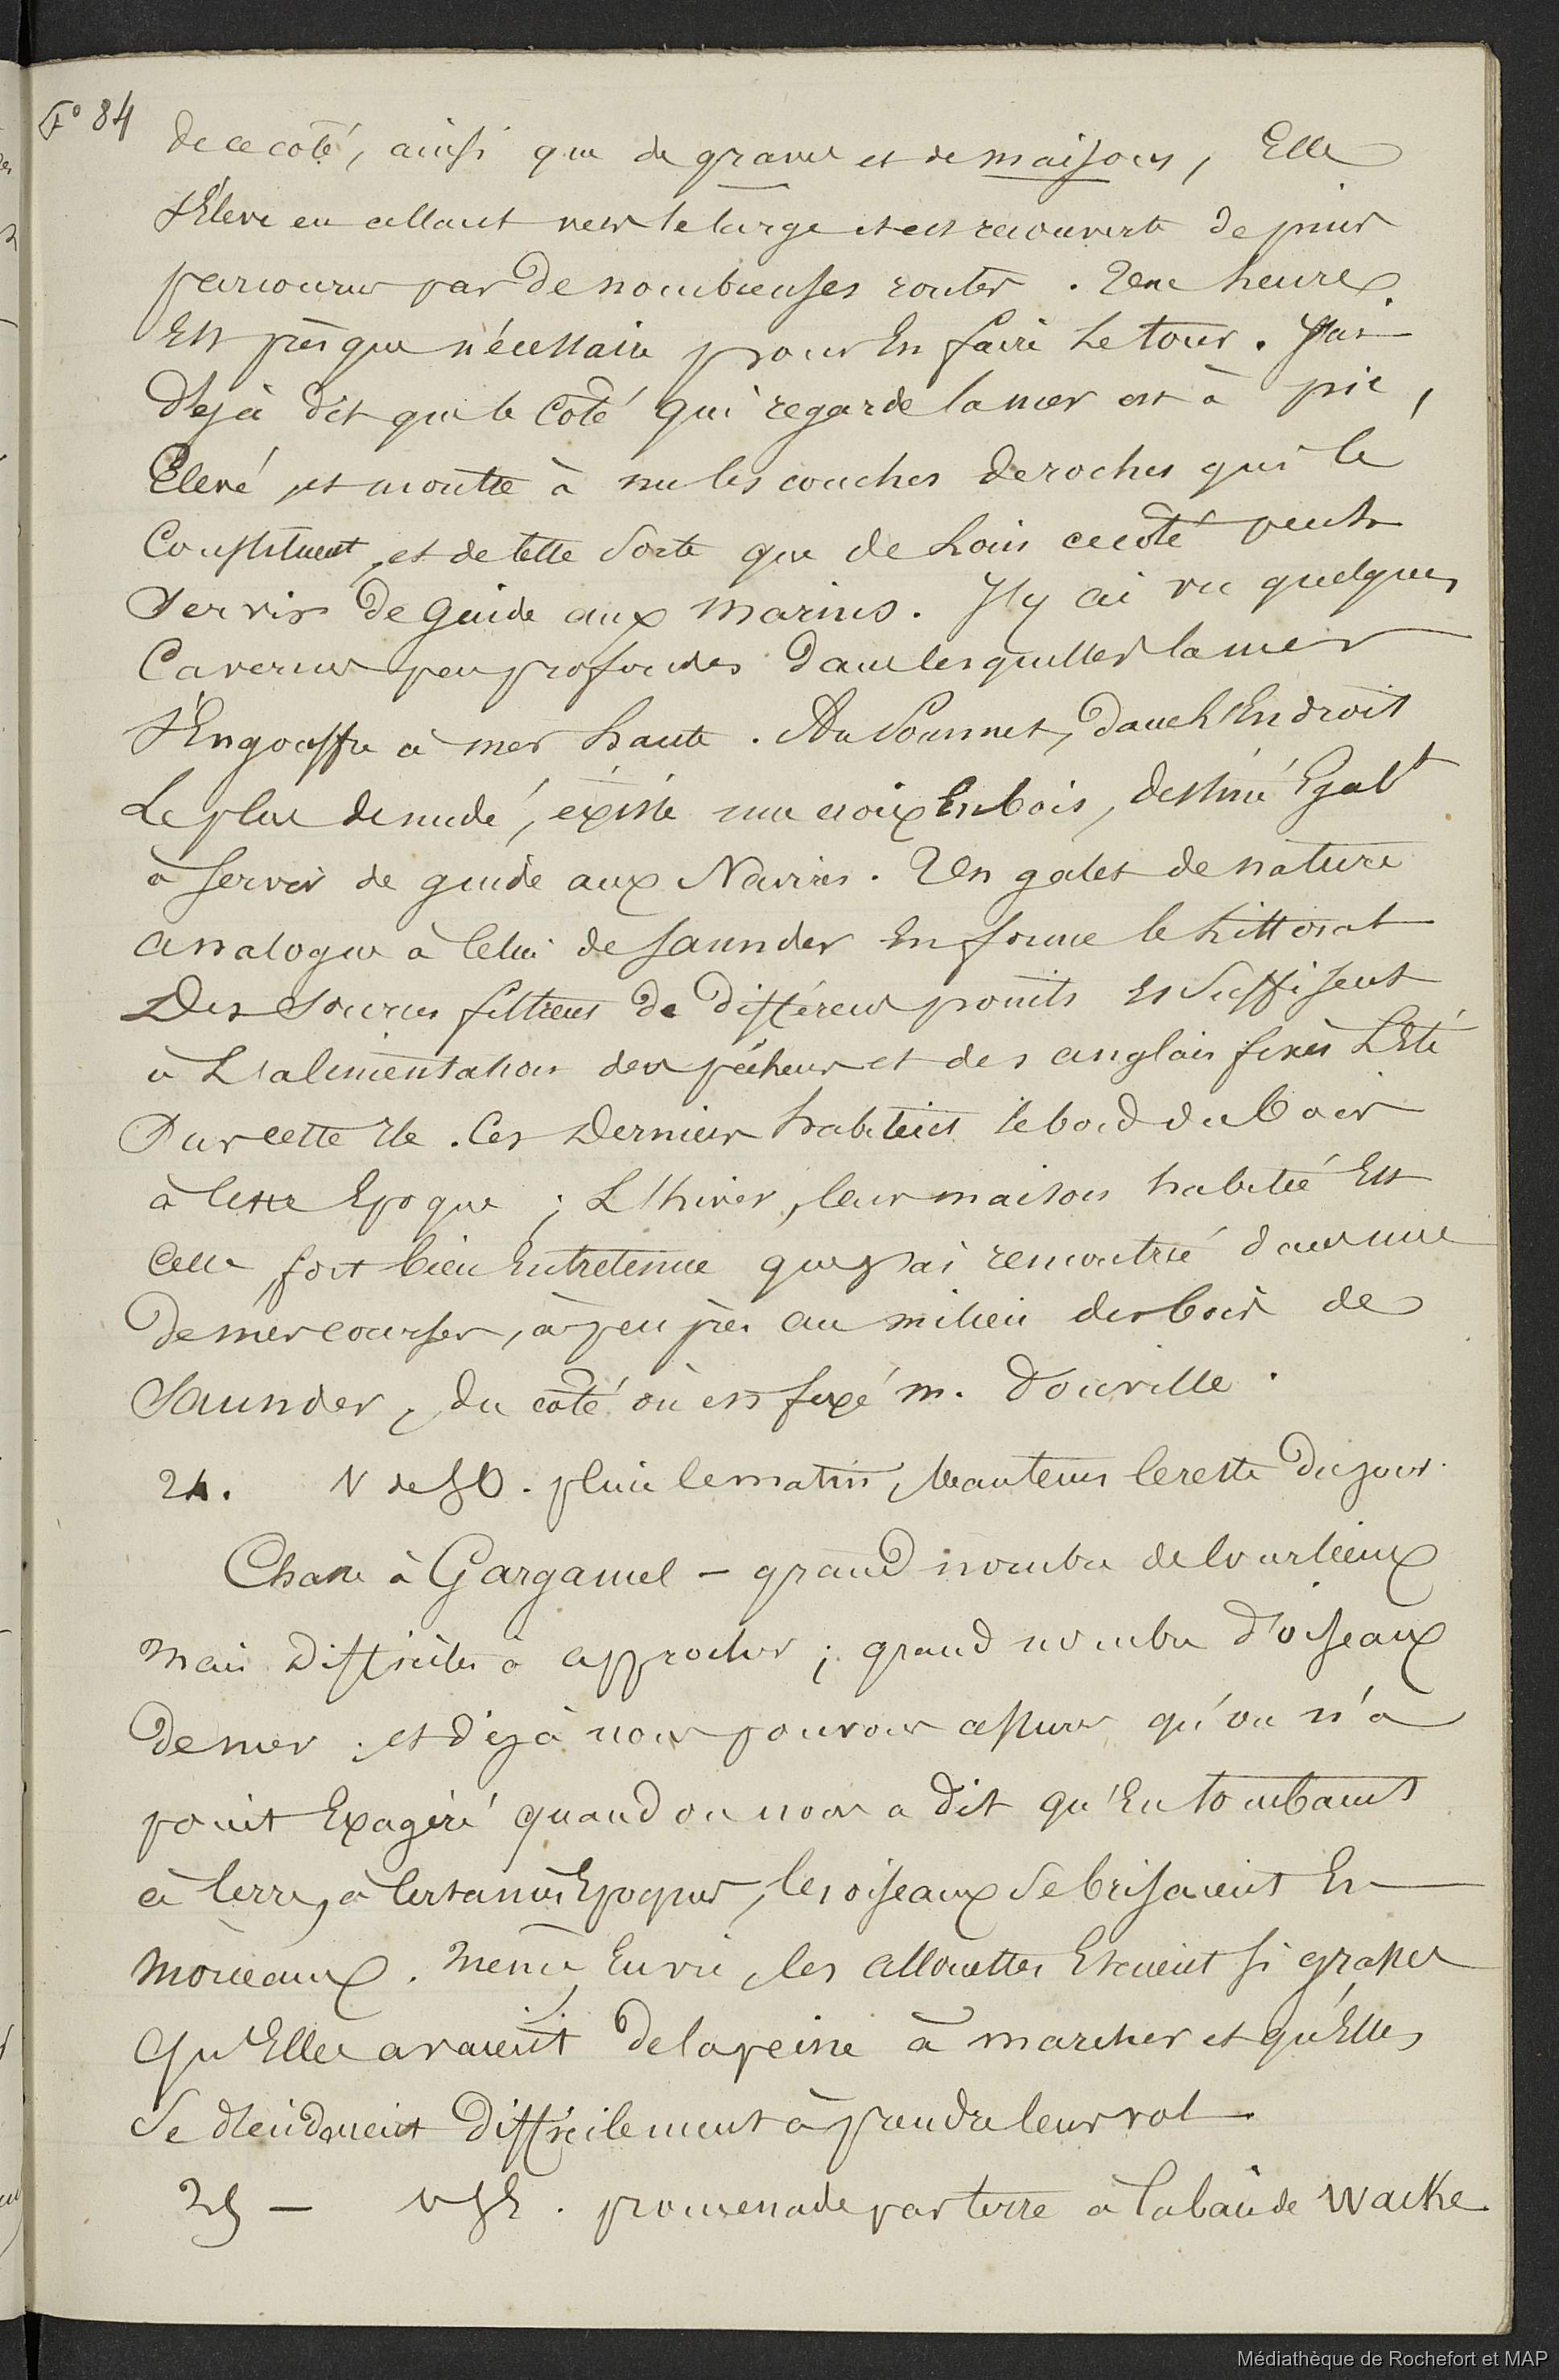 F° 84
de ce coté, ainsi que de graves et de maisons, Elle
s'Éleve en allant vers le large et est recouverte de pins
parcourus par de nombreuses routes. Une heure
Est presque nécessaire pour En faire Le tour. J'ai
dejà dit que le Coté qui regarde la mer est à pic,
Élevé, et montre à nu les couches de roches qui le
Constituent, et de telle sorte que de Loin ce coté peut
Servir de Guide aux Marins. J'y ai vu quelques
Cavernes peu profondes dans lesquelles la mer
s'Engouffre à mer haute. Au Sommet, dans l'Endroit
Le plus denudé, existe une croix En bois, destiné Egalt
à servir de guide aux Navires. Un galet de nature
analogue à Celui de Saunder En forme le Littoral
Des Sources filtrent de différens points Et Suffisent
à L'alimentation des pécheurs et des anglais fixés L'Eté
Sur cette Ile. Ces Derniers habitent le bord du bois
à Cette Epoque ; L'hiver, leur maison habitée Est
Celle fort bien Entretenue que j'ai rencontrée dans une
De mes courses, à peu près au milieu des bois de
Saunder, du coté où est fixé m. Douville.
24. V de SO. pluie le matin, beau tems le reste du jour.
Chasse à Gargamel – grand nombre de Courlieux
Mais difficiles à approcher ; grand nombre d'oiseaux
De mer ; et dejà nous pouvons assurer qu'on n'a
point Exagéré quand on nous a dit qu'En tombant
à terre, à Certaines Epoques, les oiseaux Se brisaient En
Morceaux. Même En vie, les allouettes Etaient si grasses
Qu'Elles avaient de la peine à marcher et qu'Elles
Se difficilement à prendre leur vol.
25 – V SE. promenade par terre à la baie de Wacke
Médiathèque de Rochefort et MAP